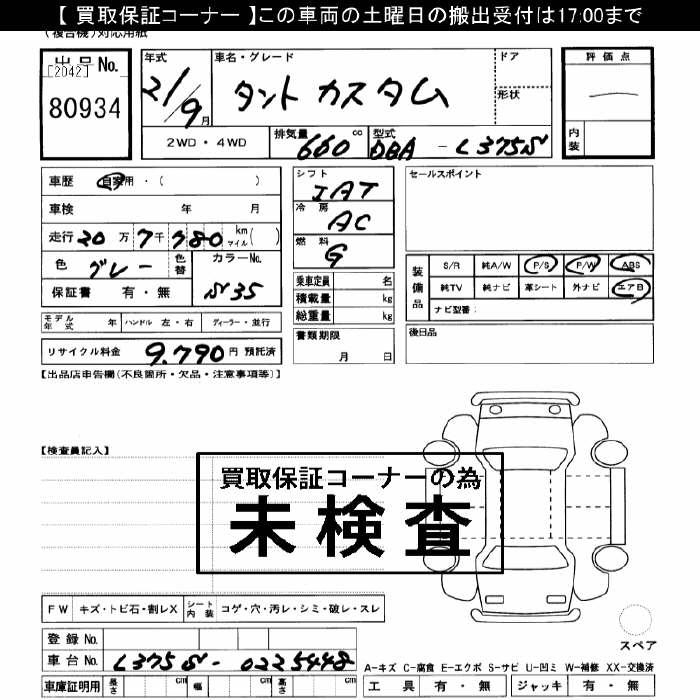 【 買取保証コーナー 】この車両の土曜日の搬出受付は17:00まで
(複合機)対応用紙
出品No.
[2042]
80934
年式
21/9月
車名・グレード
タント カスタム
ドア
形状
評価点
内装
2WD・4WD
排気量 660 cc
型式 DBA - L375S
車歴 自家用・( )
車検 年 月
走行 20万7千780 km マイル( )
色 グレー
色替
カラーNo. S35
保証書 有・無
シフト IAT
冷房 AC
燃料 G
乗車定員 名
積載量 kg
総重量 kg
セールスポイント
装備品
S/R 純A/W P/S P/W ABS
純TV 純ナビ 革シート 外ナビ エアB
ナビ型番:
モデル年式 年 ハンドル 左・右 ディーラー・並行
リサイクル料金 9,790 円 預託済
書類期限
月 日
後日品
【出品店申告欄(不良箇所・欠品・注意事項等)】
【検査員記入】
買取保証コーナーの為
未検査
FW キズ・トビ石・割レX シート内装 コゲ・穴・汚レ・シミ・破レ・スレ
スペア
登録 No.
車台 No. L375S-0225448
車庫証明用 長さ cm 幅 cm 高さ cm
A-キズ C-腐食 E-エクボ S-サビ U-凹ミ W-補修 XX-交換済
工具 有・無 ジャッキ 有・無